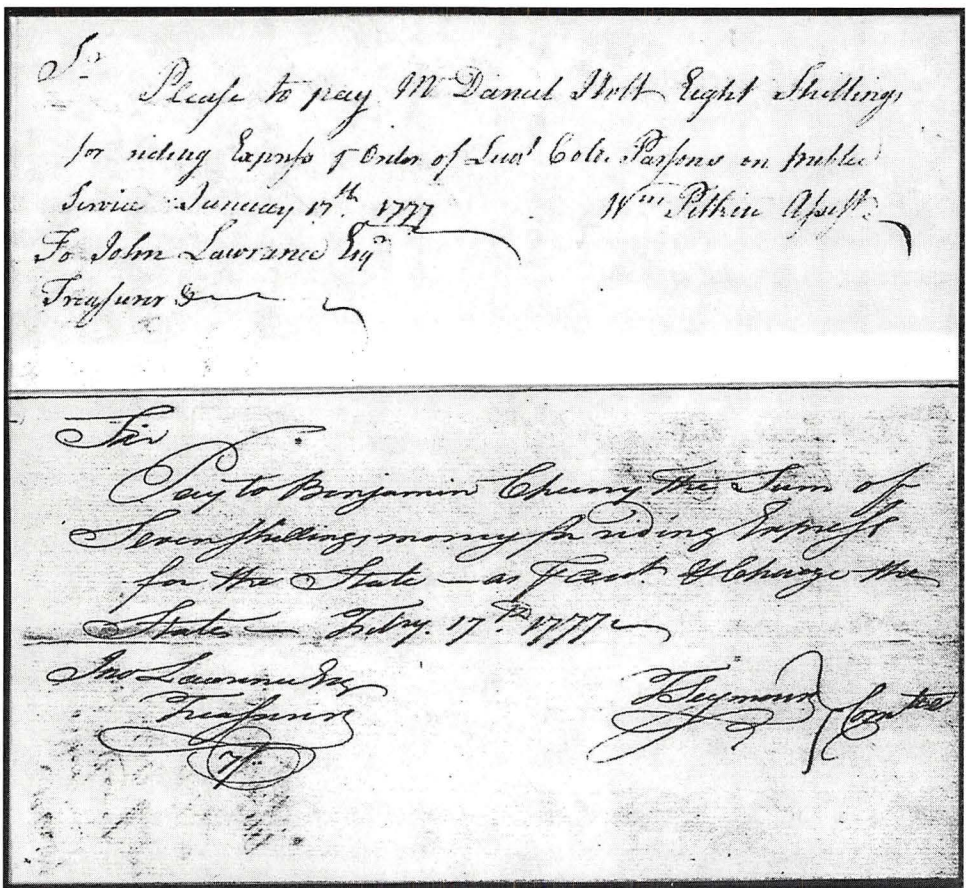 Sr
Please to pay Mr Daniel Holt Eight Shillings
for riding Express ⅌ Order of Lieut Colo. Parsons on publick
Service January 17th. 1777 Wm Pitkin Assistt.
To John Lawrance Esqr
Treasurer &
Sir
Pay to Benjamin Cheney the Sum of
Seven Shillings money for riding Express
for the State — as ⅌ Acct. & Charge the
State — Febry. 17th. 1777
Jno Lawrence Esq
Treasurer
T Seymour Comtee
7/